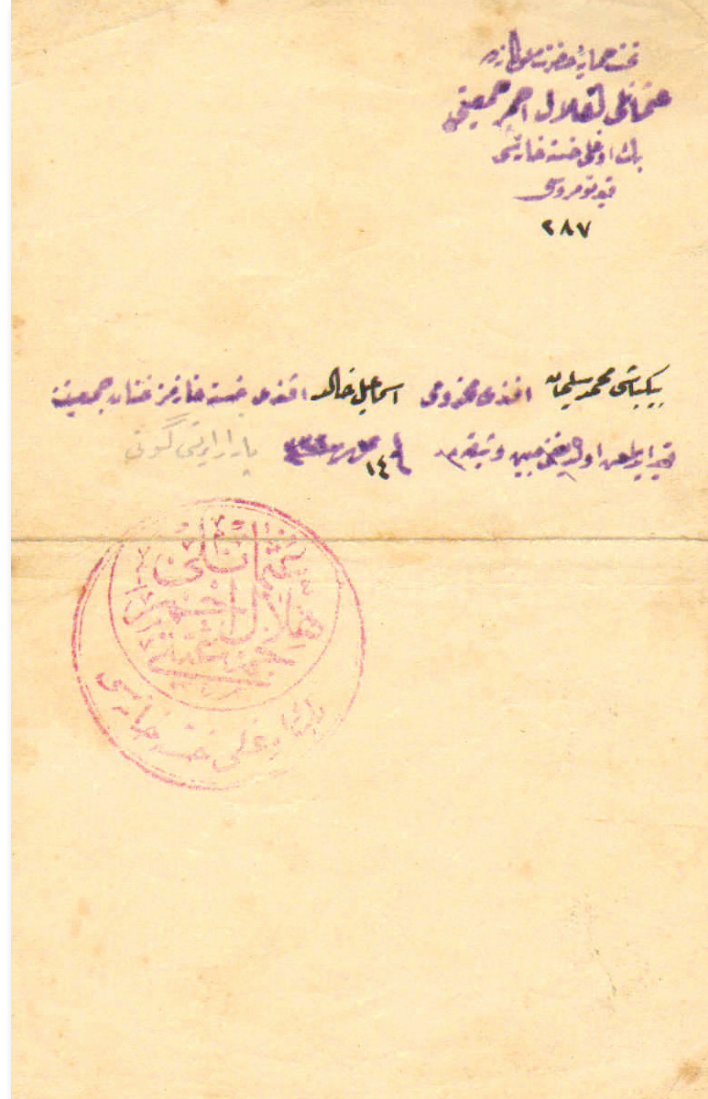 تحت حمایهٔ حضرت ملوکانه‌ده
عثمانلی هلال احمر جمعیتی
بك اوغلی خسته خانه‌سی
قید نومروسی
٢٨٧
بیكباشی محمد سلیمان افندی مخدومی اسماعیل خالد افندی خسته خانه‌مز ختان جمعیتنه
قید ایدلمش اولدیغنی مبین وثیقه‌در ١٤ پازار ایرتسی گونی
عثمانلی
هلال احمر
جمعیتی
بك اوغلی خسته خانه‌سی